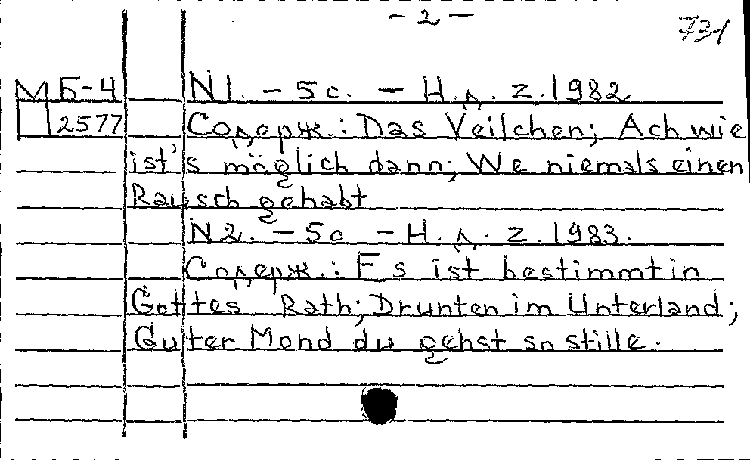 - 2 -
731
М Б-4 N1. - 5 с. - Н. д. z. 1982
2577 Содерж.: Das Veilchen; Ach wie
ist's möglich dann; We niemals einen
Rausch gehabt
N2. - 5 с - Н. д. z. 1983.
Содерж.: Es ist bestimmt in
Gottes Rath; Drunten im Unterland;
Guter Mond du gehst so stille.